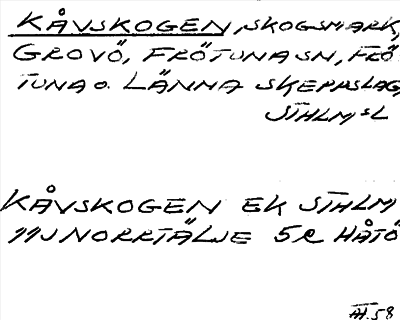 KÅVSKOGEN, SKOGSMARK,
GROVÖ, FRÖTUNA SN, FRÖ
TUNA O. LÄNNA SKEPPSLAG,
STHLMSL
KÅVSKOGEN EK STHLM
11J NORRTÄLJE 5e HÅTÖ
58